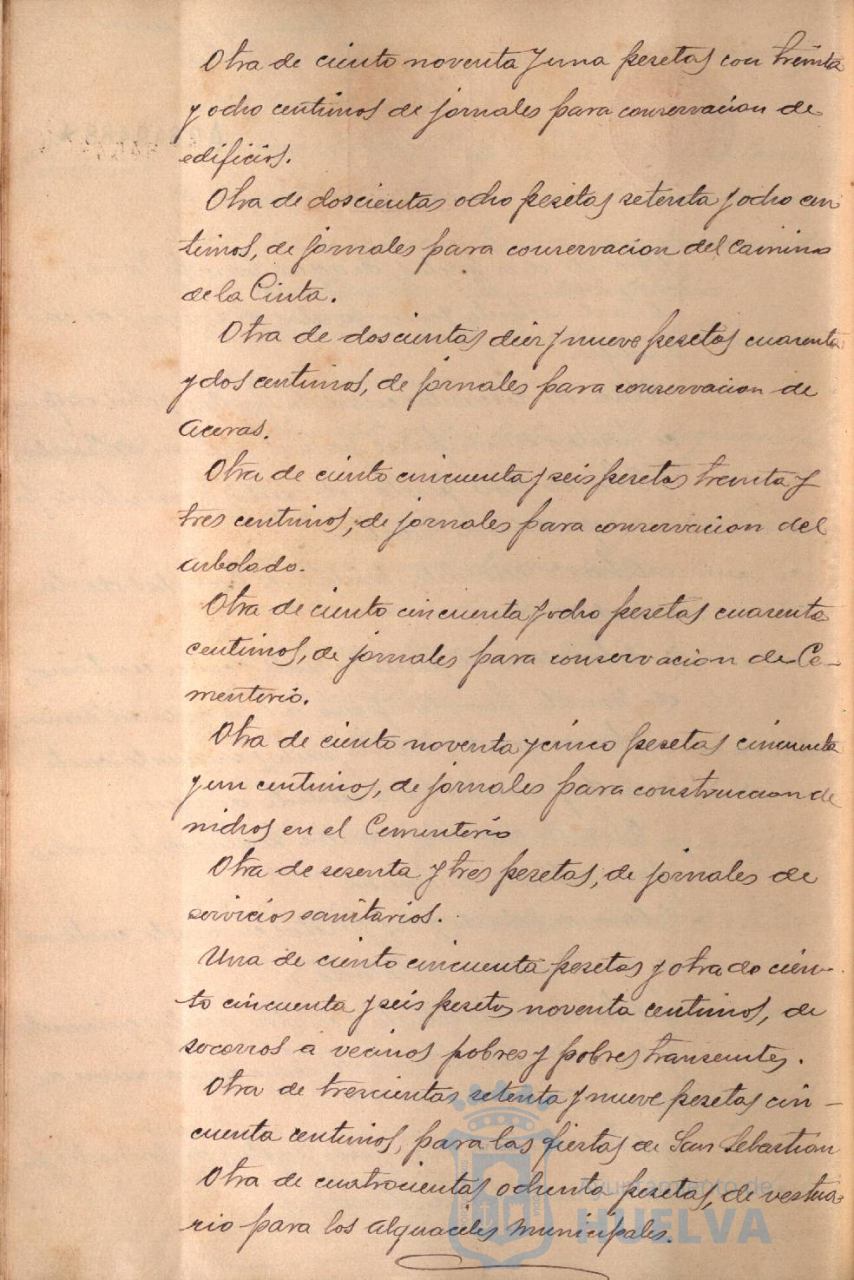 Otra de ciento noventa y una pesetas con treinta
y ocho centimos de jornales para conservacion de
edificios.
Otra de doscientas ocho pesetas setenta y ocho cen
timos, de jornales para conservacion del Camino
de la Cinta.
Otra de doscientas diez y nueve pesetas cuarenta
y dos centimos, de jornales para conservacion de
aceras.
Otra de ciento cincuenta y seis pesetas treinta y
tres centimos, de jornales para conservacion del
arbolado.
Otra de ciento cincuenta y ocho pesetas cuarenta
centimos, de jornales para conservacion de Ce-
menterio.
Otra de ciento noventa y cinco pesetas cincuenta
y un centimos, de jornales para construccion de
nichos en el Cementerio
Otra de sesenta y tres pesetas, de jornales de
servicios sanitarios.
Una de ciento cincuenta pesetas y otra de cien-
to cincuenta y seis pesetas noventa centimos, de
socorros a vecinos pobres y pobres transeuntes.
Otra de trescientas setenta y nueve pesetas cin-
cuenta centimos, para las fiestas de San Sebastian
Otra de cuatrocientas ochenta pesetas, de vestua-
rio para los alguaciles municipales.
Ayuntamiento de
HUELVA